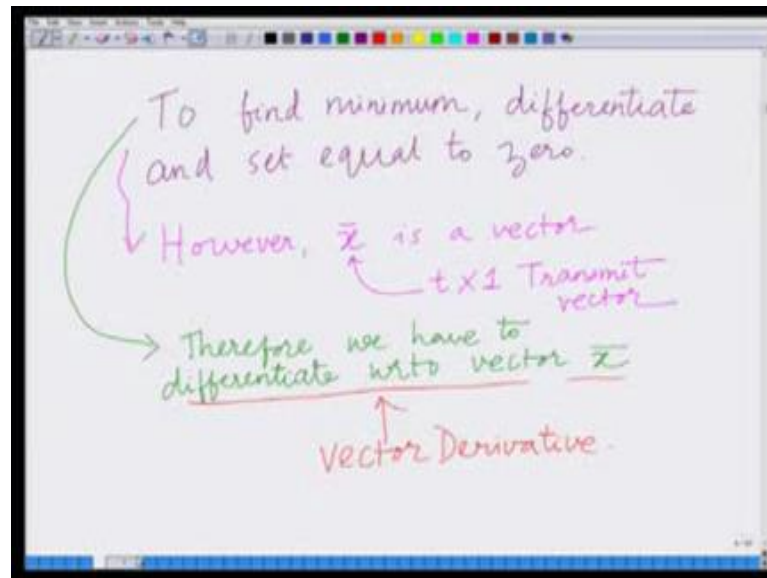 To find minimum, differentiate
and set equal to zero.
However, x̄ is a vector
t×1 Transmit
vector
Therefore we have to
differentiate wrto vector x̄
Vector Derivative.